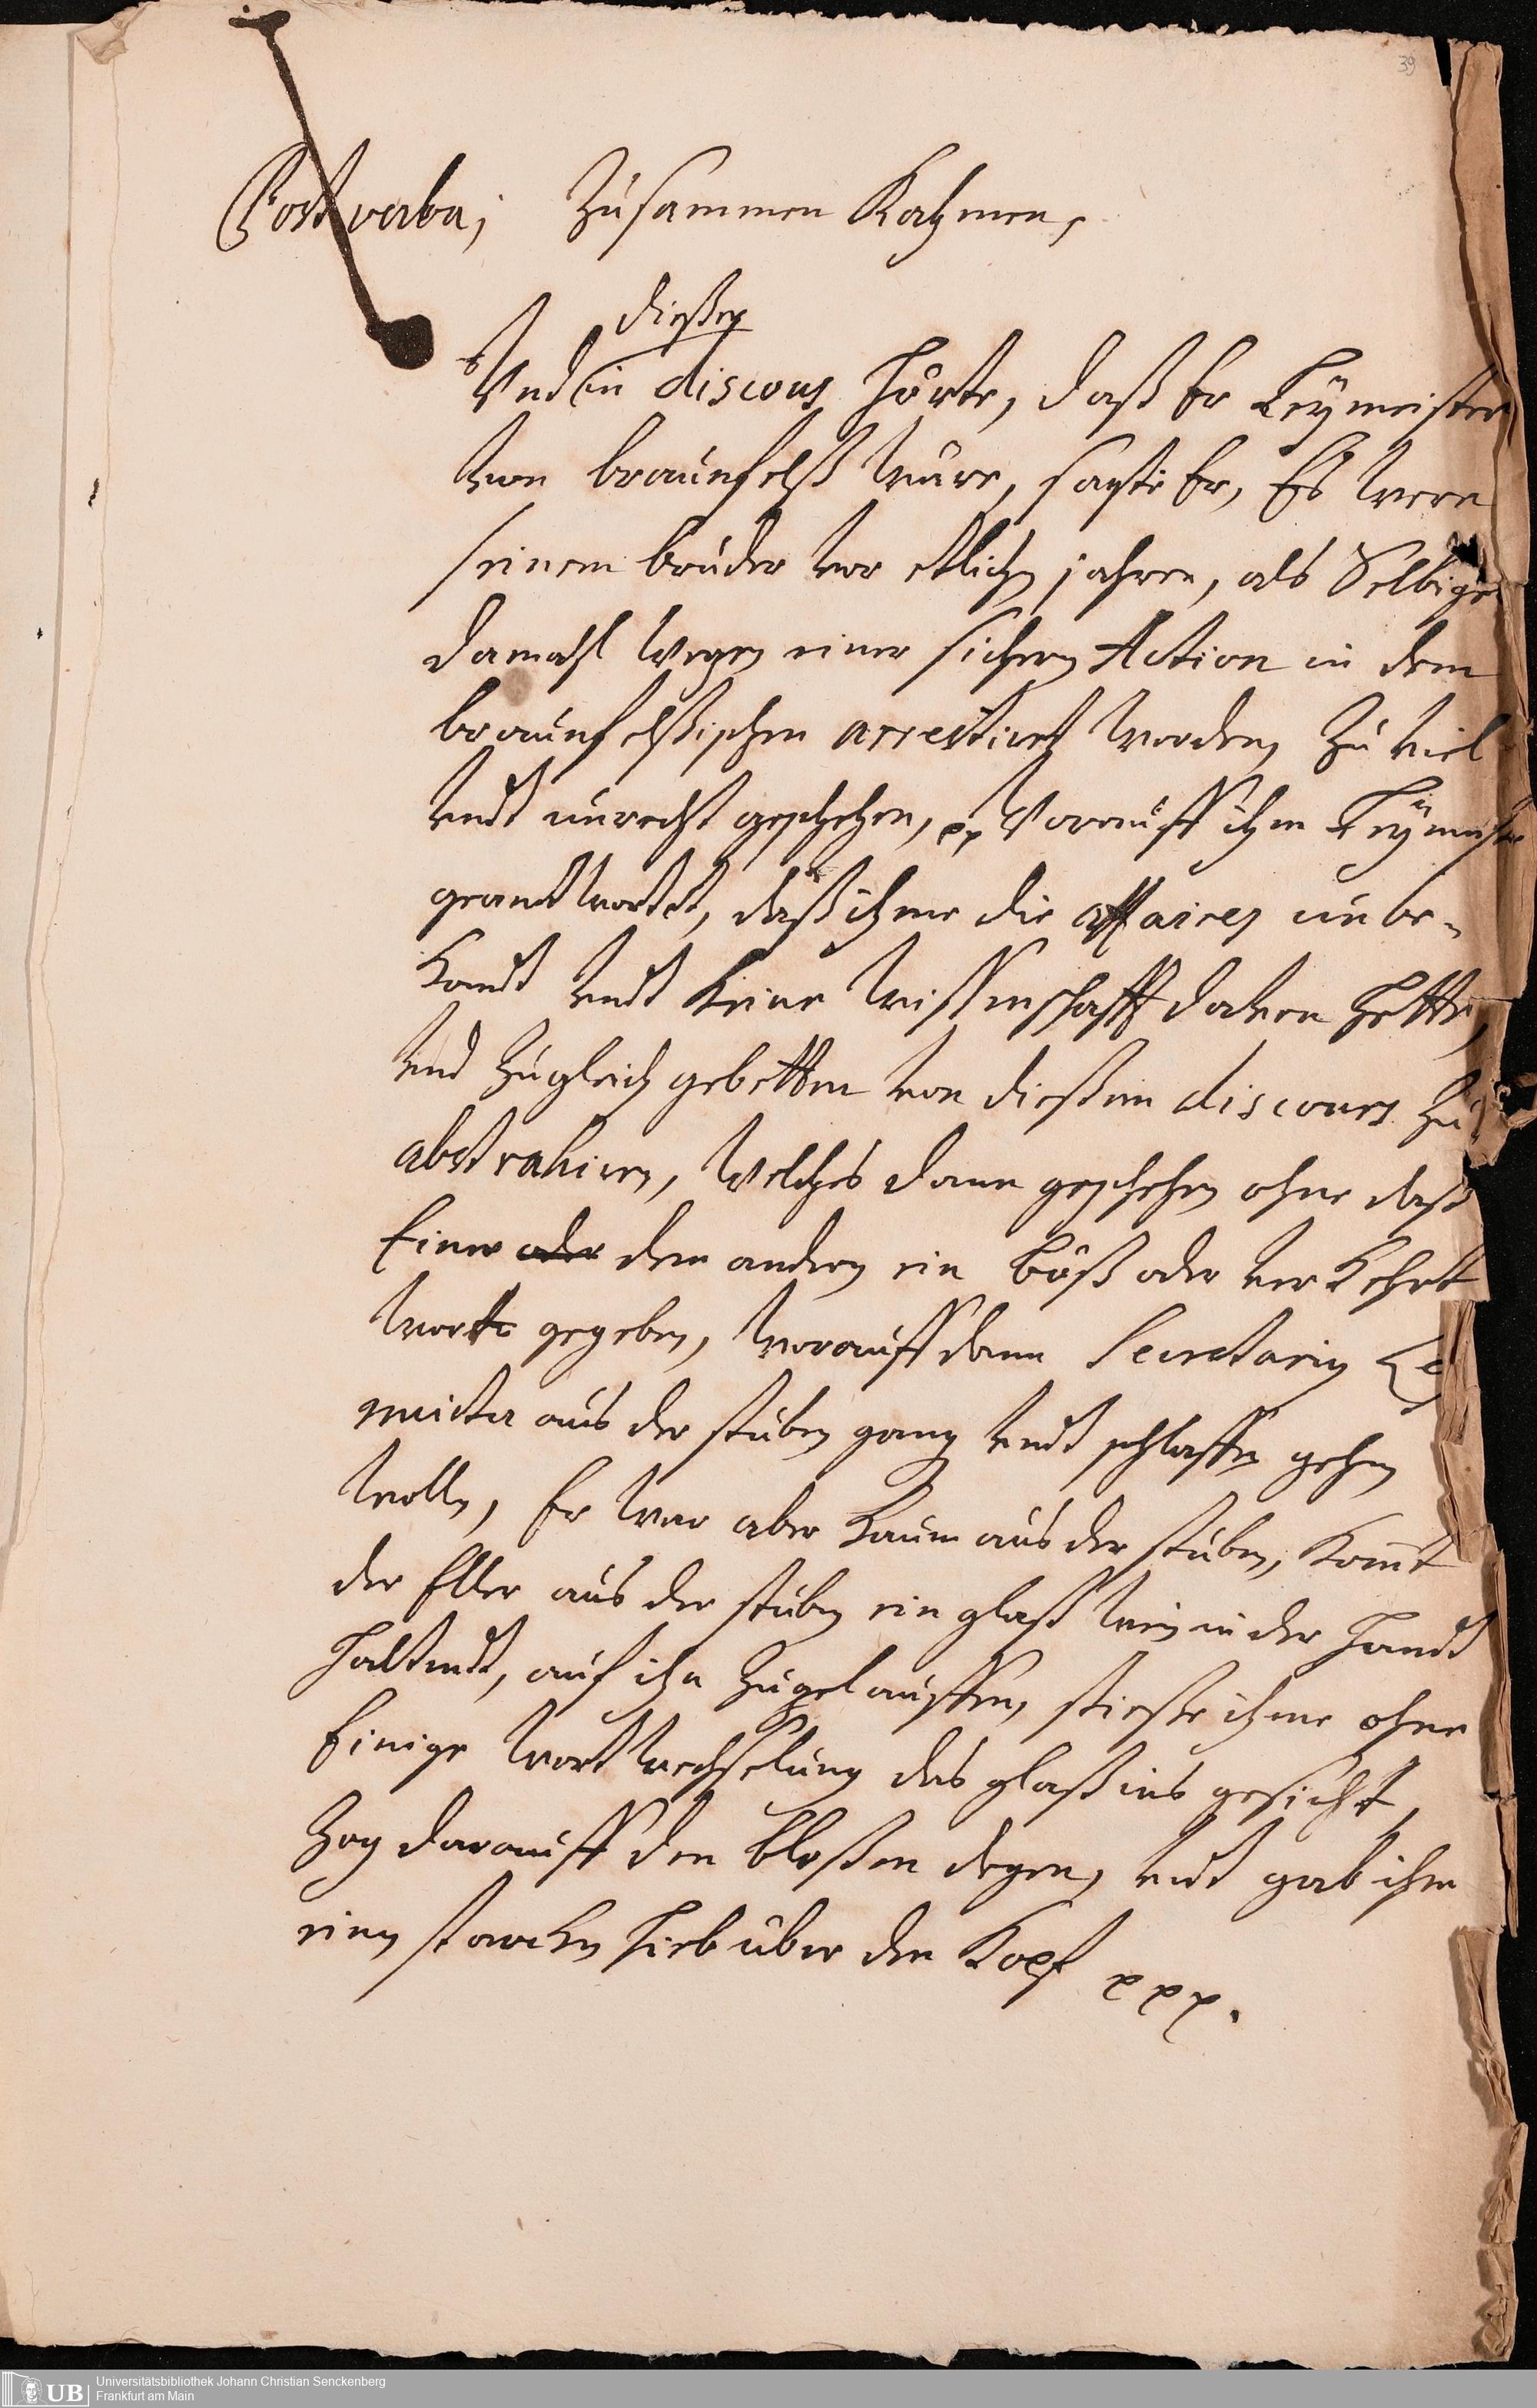 39
Post verba; Zusammen Kahmen,
dießer
Und in discours hörte, daß Er Leymeister
von braunfelß wäre, sagte Er, Es were
seinem bruder vor etlichen jahren, als Selbiger
damahl wegen einer sichern Action in dem
braunfelßischen arrestiret worden, zu viel
undt unrecht geschehen, pp Worauff ihm Leymeister
geantwortet, daß ihme die affaires unbe-
kandt undt keine wissenschafft davon hette,
und zugleich gebetten von dießem discours zu
abstrahiren, Welches dann geschehen ohne daß
Einer oder dem andern ein böß oder verkehrt
wort gegeben, worauff dann Secretarius Ley
meister aus der stuben gang undt schlaffen gehen
wollen, Er war aber kaum aus der stuben, komt
der Eller aus der stuben ein glaß wein in der handt
haltendt, auf ihn zugelauffen, stieße ihme ohne
Einige wortwechselung das glaß ins gesicht,
zog darauff den bloßen degen, undt gab ihm
einen starcken hieb über den Kopf ppp.
UB Universitätsbibliothek Johann Christian Senckenberg
Frankfurt am Main